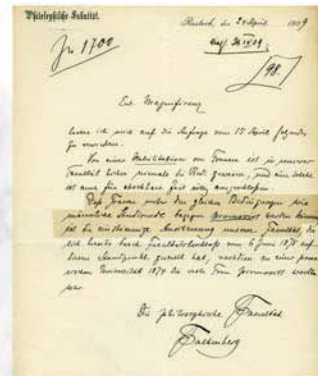 Philosophische Fakultät.
Rostock, den 24 April 1909
No 1700
98.
Ew. Magnifizenz
beehre ich mich auf die Anfrage vom 15 April folgendes
zu erwidern.
Von einer Habilitation von Frauen ist in unserer
Fakultät bisher niemals die Rede gewesen, und eine solche
ist auch für absehbare Zeit völlig ausgeschlossen.
Daß Frauen unter den gleichen Bedingungen wie
männliche Studierende promoviert werden können
ist die einstimmige Anschauung unserer Fakultät, die
sich bereits durch Fakultätsbeschluß vom 6 Juni 1875 auf
diesen Standpunkt gestellt hat, nachdem an einer
Universität 1874 die erste Frau promoviert worden
war.
Die philosophische Facultät
Falkenberg